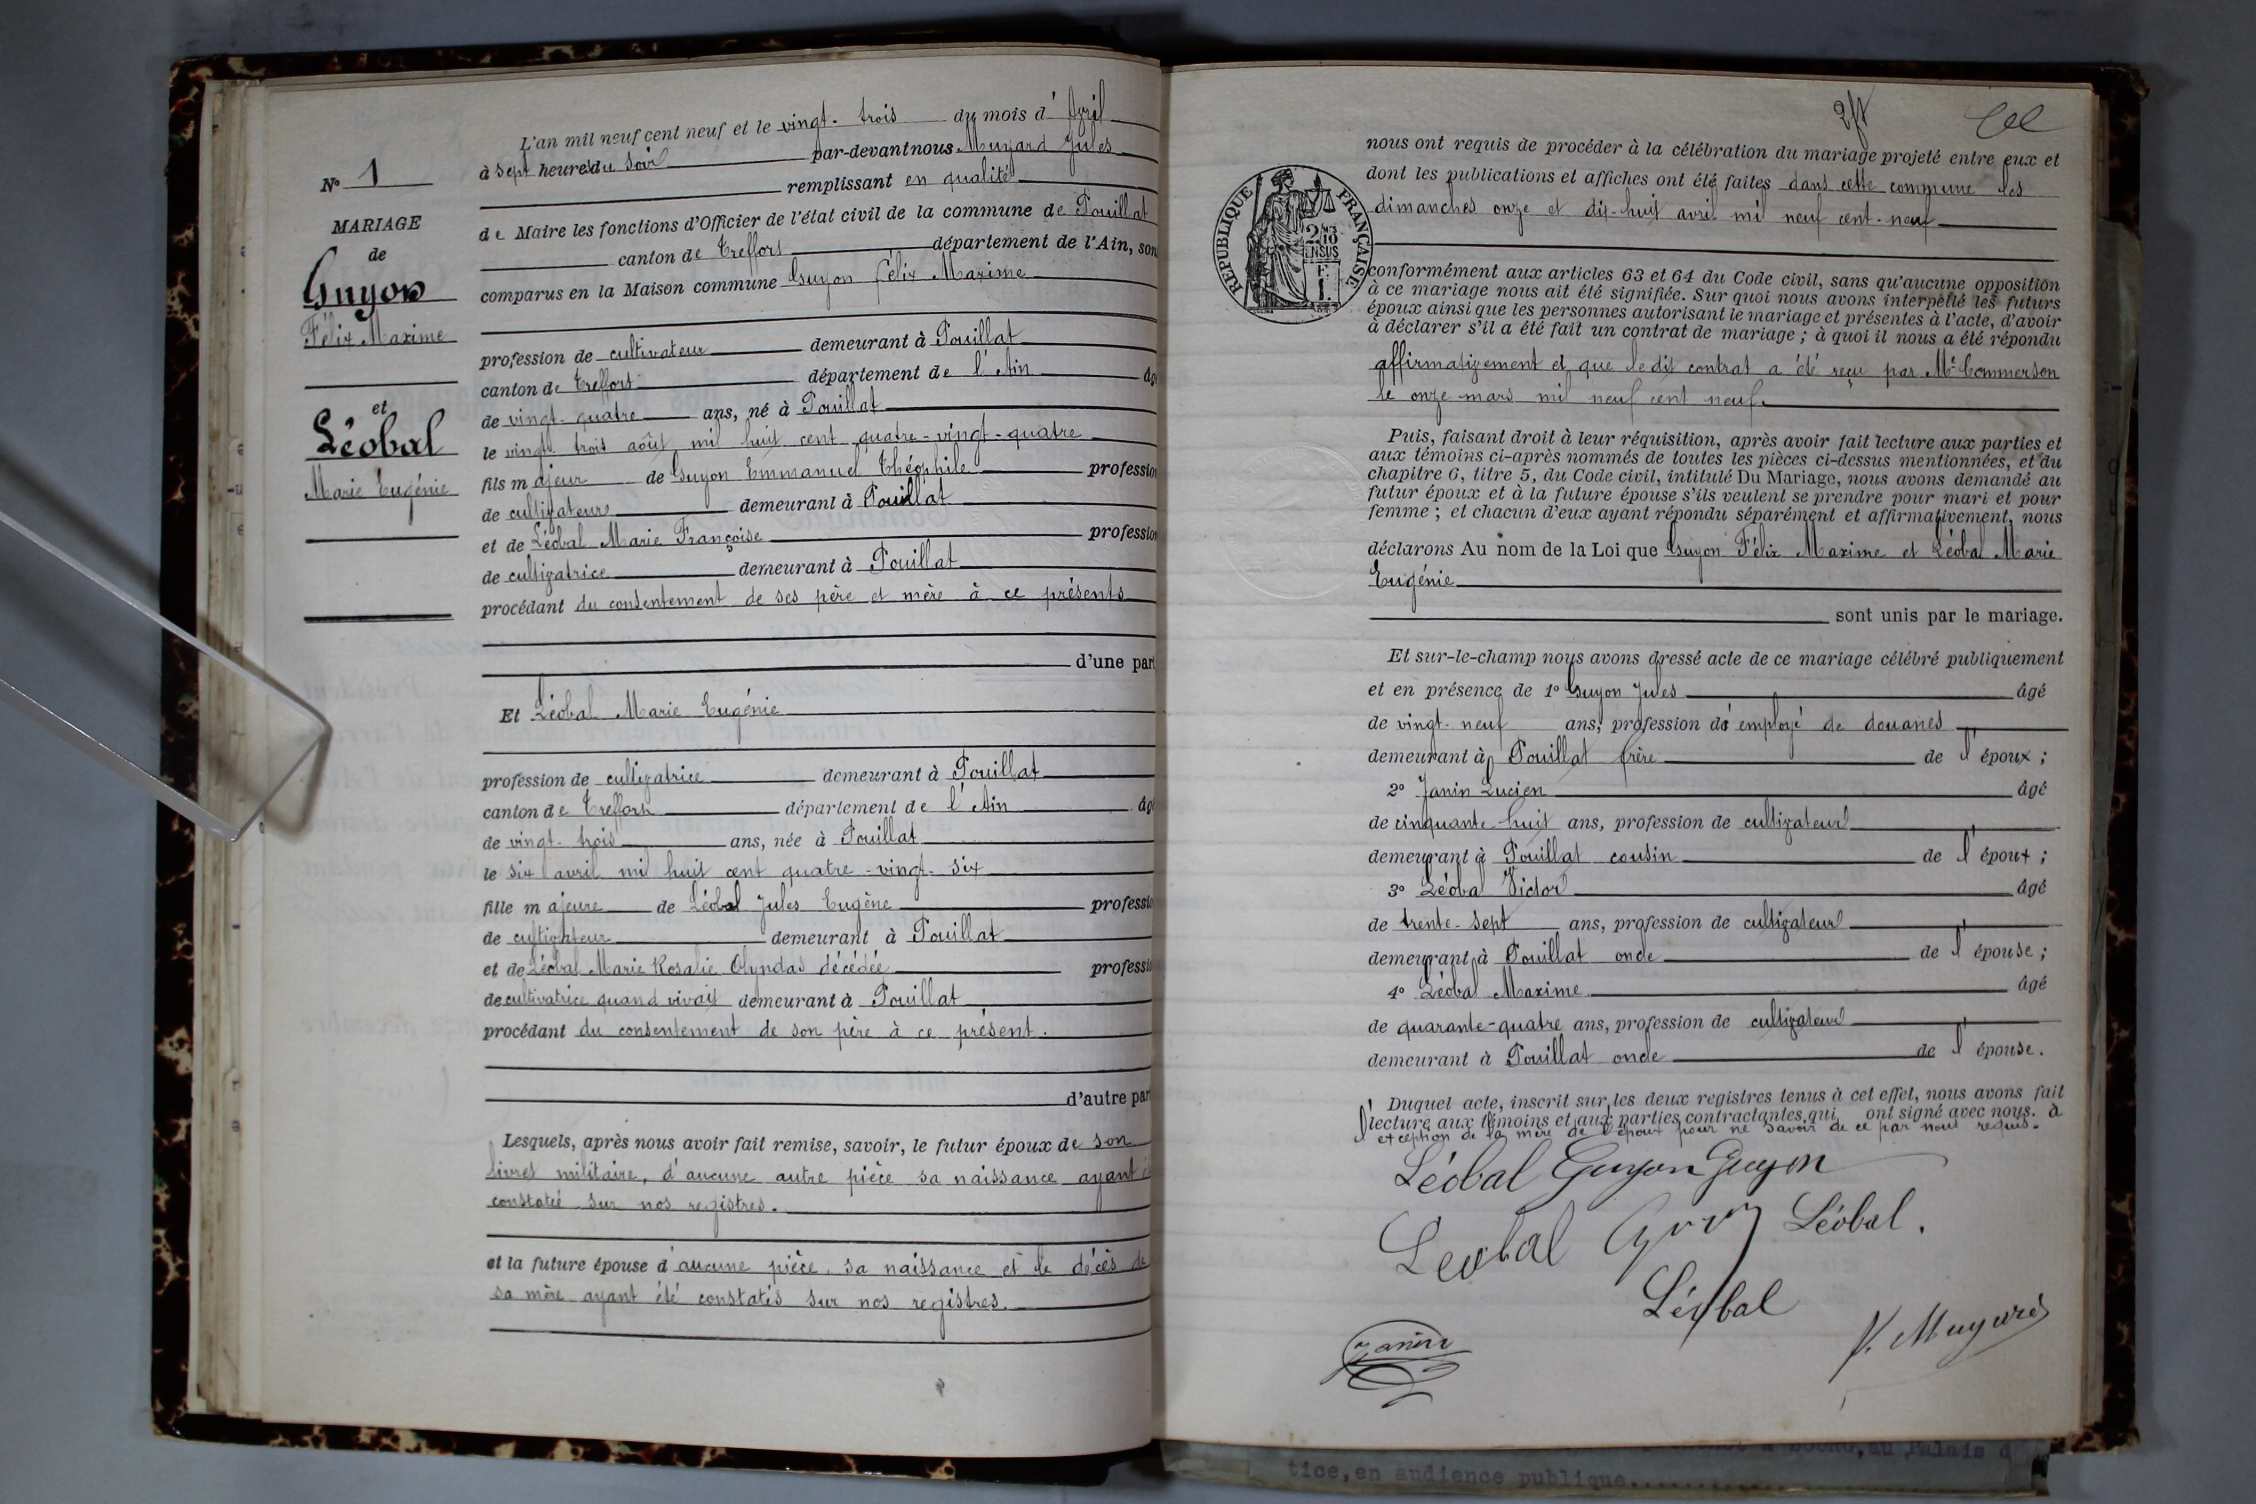 L'an mil neuf cent neuf et le vingt-trois du mois d'Avril
à sept heures du soir par-devant nous Muyard Jules
remplissant en qualité
de Maire les fonctions d'Officier de l'état civil de la commune de Pouillat
canton de Treffort département de l'Ain, son
comparus en la Maison commune Guyon Félix Maxime
profession de cultivateur demeurant à Pouillat
canton de Treffort département de l'Ain âg
de vingt-quatre ans, né à Pouillat
le vingt-trois août mil huit cent quatre-vingt-quatre
fils majeur de Guyon Emmanuel Théophile profession
de cultivateur demeurant à Pouillat
et de Léobal Marie Françoise profession
de cultivatrice demeurant à Pouillat
procédant du consentement de ses père et mère à ce présents
d'une part
Et Léobal Marie Eugénie
profession de cultivatrice demeurant à Pouillat
canton de Treffort département de l'Ain âg
de vingt-trois ans, née à Pouillat
le six avril mil huit cent quatre-vingt-six
fille majeure de Léobal Jules Eugène professio
de cultivateur demeurant à Pouillat
et de Léobal Marie Rosalie Olyndas décédée professi
de cultivatrice quand vivait demeurant à Pouillat
procédant du consentement de son père à ce présent.
d'autre par
Lesquels, après nous avoir fait remise, savoir, le futur époux de son
livret militaire, d'aucune autre pièce sa naissance ayant é
constatée sur nos registres.
et la future épouse d'aucune pièce, sa naissance et le décès de
sa mère ayant été constatés sur nos registres.
N° 1
MARIAGE
de
Guyon
Félix Maxime
et
Léobal
Marie Eugénie
nous ont requis de procéder à la célébration du mariage projeté entre eux et
dont les publications et affiches ont été faites dans cette commune les
dimanches onze et dix-huit avril mil neuf cent-neuf
conformément aux articles 63 et 64 du Code civil, sans qu'aucune opposition
à ce mariage nous ait été signifiée. Sur quoi nous avons interpellé les futurs
époux ainsi que les personnes autorisant le mariage et présentes à l'acte, d'avoir
à déclarer s'il a été fait un contrat de mariage ; à quoi il nous a été répondu
affirmativement et que le dit contrat a été reçu par Me Commerson
le onze mars mil neuf cent neuf.
Puis, faisant droit à leur réquisition, après avoir fait lecture aux parties et
aux témoins ci-après nommés de toutes les pièces ci-dessus mentionnées, et du
chapitre 6, titre 5, du Code civil, intitulé Du Mariage, nous avons demandé au
futur époux et à la future épouse s'ils veulent se prendre pour mari et pour
femme ; et chacun d'eux ayant répondu séparément et affirmativement, nous
déclarons Au nom de la Loi que Guyon Félix Maxime et Léobal Marie
Eugénie
sont unis par le mariage.
Et sur-le-champ nous avons dressé acte de ce mariage célébré publiquement
et en présence de 1° Guyon Jules âgé
de vingt-neuf ans, profession d'employé de douanes
demeurant à Pouillat frère de l'époux ;
2° Janin Lucien âgé
de cinquante-huit ans, profession de cultivateur
demeurant à Pouillat cousin de l'époux ;
3° Léobal Victor âgé
de trente-sept ans, profession de cultivateur
demeurant à Pouillat oncle de l'épouse ;
4° Léobal Maxime âgé
de quarante-quatre ans, profession de cultivateur
demeurant à Pouillat oncle de l'épouse.
Duquel acte, inscrit sur les deux registres tenus à cet effet, nous avons fait
lecture aux témoins et aux parties contractantes, qui ont signé avec nous. à
l'exception de la mère de l'époux pour ne savoir de ce par nous requis.
Léobal Guyon Guyon
Léobal Guyon Léobal.
Léobal
Janin
J. Muyard
RÉPUBLIQUE FRANÇAISE
2/10
EN SUS
tice, en audience publique